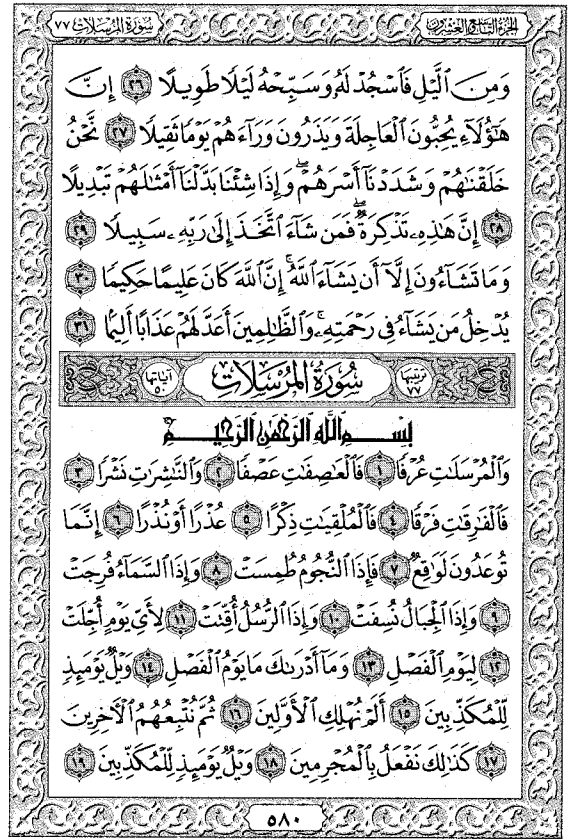 سورة المرسلات ٧٧ الجزء التاسع والعشرون
وَمِنَ ٱلَّيْلِ فَٱسْجُدْ لَهُۥ وَسَبِّحْهُ لَيْلًا طَوِيلًا ٢٦ إِنَّ
هَٰٓؤُلَآءِ يُحِبُّونَ ٱلْعَاجِلَةَ وَيَذَرُونَ وَرَآءَهُمْ يَوْمًا ثَقِيلًا ٢٧ نَّحْنُ
خَلَقْنَٰهُمْ وَشَدَدْنَآ أَسْرَهُمْ ۖ وَإِذَا شِئْنَا بَدَّلْنَآ أَمْثَٰلَهُمْ تَبْدِيلًا
٢٨ إِنَّ هَٰذِهِۦ تَذْكِرَةٌ ۖ فَمَن شَآءَ ٱتَّخَذَ إِلَىٰ رَبِّهِۦ سَبِيلًا ٢٩
وَمَا تَشَآءُونَ إِلَّآ أَن يَشَآءَ ٱللَّهُ ۚ إِنَّ ٱللَّهَ كَانَ عَلِيمًا حَكِيمًا ٣٠
يُدْخِلُ مَن يَشَآءُ فِى رَحْمَتِهِۦ ۚ وَٱلظَّٰلِمِينَ أَعَدَّ لَهُمْ عَذَابًا أَلِيمًۢا ٣١
ترتيبها ٧٧ سُورَةُ الْمُرْسَلَاتِ آياتها ٥٠
بِسْمِ ٱللَّهِ ٱلرَّحْمَٰنِ ٱلرَّحِيمِ
وَٱلْمُرْسَلَٰتِ عُرْفًا ١ فَٱلْعَٰصِفَٰتِ عَصْفًا ٢ وَٱلنَّٰشِرَٰتِ نَشْرًا ٣
فَٱلْفَٰرِقَٰتِ فَرْقًا ٤ فَٱلْمُلْقِيَٰتِ ذِكْرًا ٥ عُذْرًا أَوْ نُذْرًا ٦ إِنَّمَا
تُوعَدُونَ لَوَٰقِعٌ ٧ فَإِذَا ٱلنُّجُومُ طُمِسَتْ ٨ وَإِذَا ٱلسَّمَآءُ فُرِجَتْ
٩ وَإِذَا ٱلْجِبَالُ نُسِفَتْ ١٠ وَإِذَا ٱلرُّسُلُ أُقِّتَتْ ١١ لِأَىِّ يَوْمٍ أُجِّلَتْ
١٢ لِيَوْمِ ٱلْفَصْلِ ١٣ وَمَآ أَدْرَىٰكَ مَا يَوْمُ ٱلْفَصْلِ ١٤ وَيْلٌ يَوْمَئِذٍ
لِّلْمُكَذِّبِينَ ١٥ أَلَمْ نُهْلِكِ ٱلْأَوَّلِينَ ١٦ ثُمَّ نُتْبِعُهُمُ ٱلْءَاخِرِينَ
١٧ كَذَٰلِكَ نَفْعَلُ بِٱلْمُجْرِمِينَ ١٨ وَيْلٌ يَوْمَئِذٍ لِّلْمُكَذِّبِينَ ١٩
٥٨٠